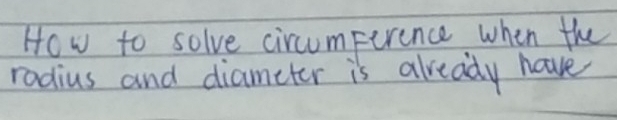 How to solve circumference when the
radius and diameter is already have